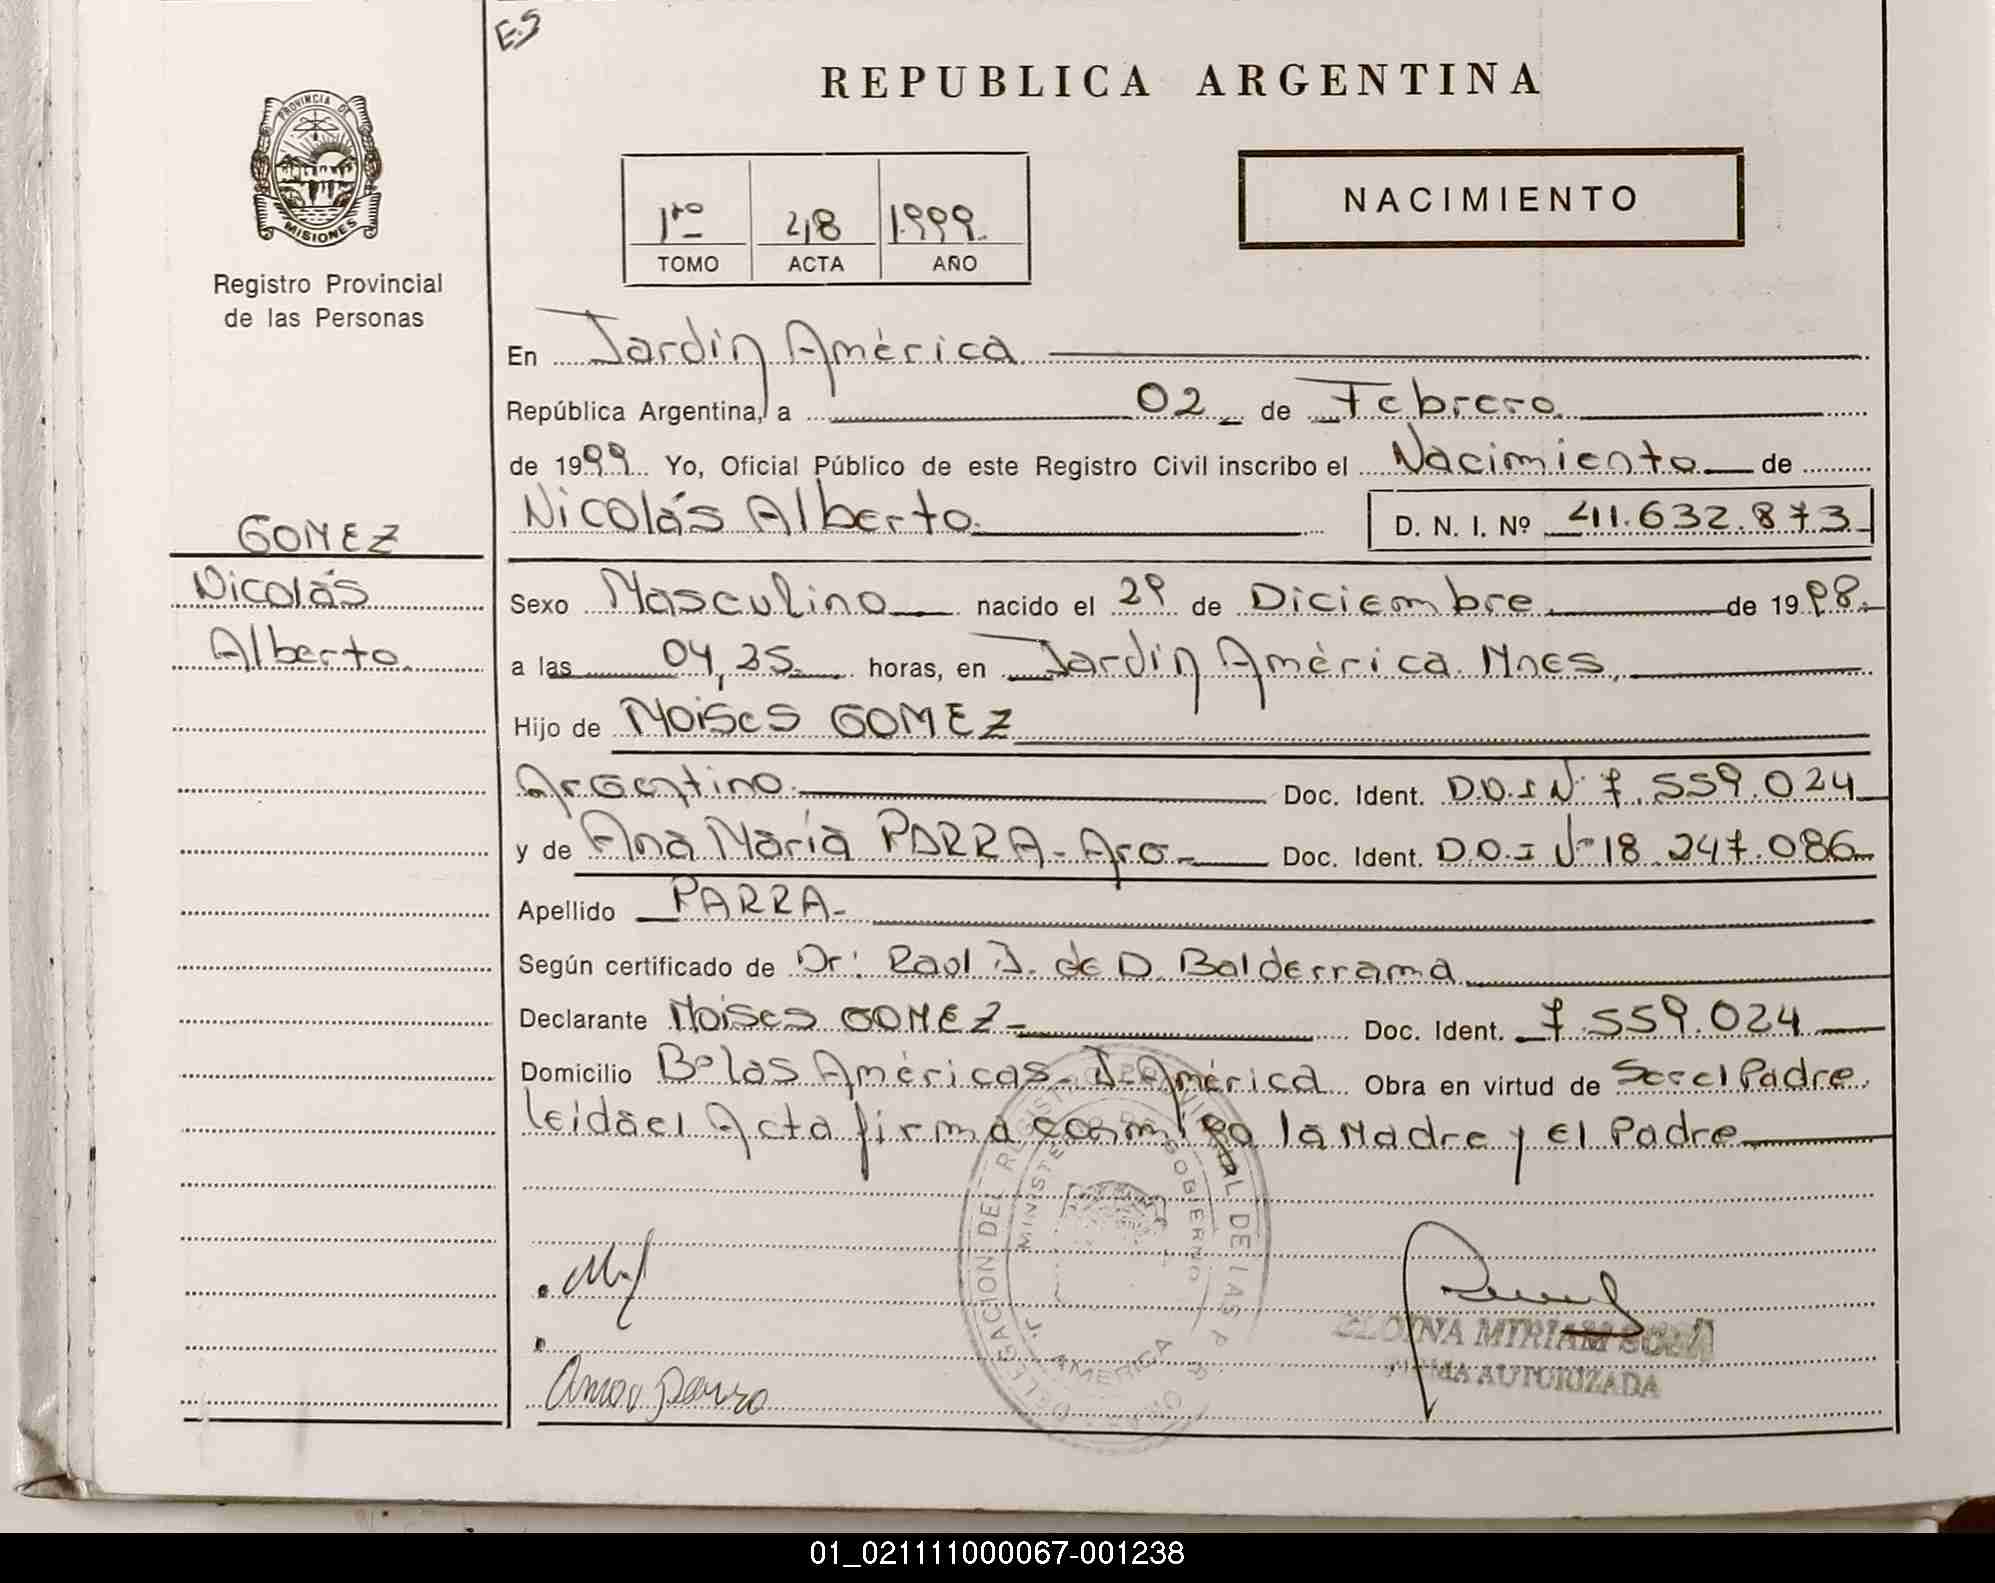 E.S
REPUBLICA ARGENTINA
PROVINCIA DE
MISIONES
Registro Provincial
de las Personas
1ro 48 1.999.
TOMO ACTA AÑO
NACIMIENTO
En Jardín América
República Argentina, a 02 de Febrero
de 1999 Yo, Oficial Público de este Registro Civil inscribo el Nacimiento de
Nicolás Alberto. D. N. I. Nº 41.632.873
GOMEZ
Nicolás
Alberto
Sexo Masculino nacido el 29 de Diciembre de 1998.
a las 04,35 horas, en Jardín América. Mnes,
Hijo de Moises GOMEZ
Argentino. Doc. Ident. D.N.I Nº 7.559.024
y de Ana María PARRA - Arg. Doc. Ident. D.N.I Nº 18.247.086
Apellido PARRA-
Según certificado de Dr: Raul J. de D. Balderrama
Declarante Moises GOMEZ - Doc. Ident. 7.559.024
Domicilio Bº las Américas - J- América Obra en virtud de Ser el Padre.
leída el Acta firma conmigo la Madre y El Padre
DELEGACION DEL REGISTRO PROVINCIAL DE LAS
MINISTERIO DE GOBIERNO
AMERICA
MIRIAM
FIRMA AUTORIZADA
Ana Parra
01_021111000067-001238